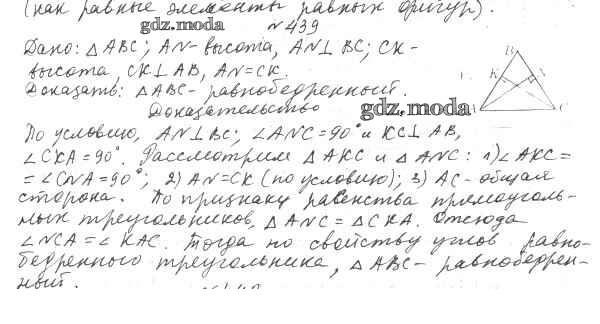 (как равные элементы равных фигур).
gdz.moda
№439
Дано: △ABC; AN-высота, AN⊥BC; CK-
высота, CK⊥AB, AN=CK.
Доказать: △ABC- равнобедренный.
Доказательство
gdz.moda
B
K
N
По условию, AN⊥BC; ∠ANC=90° и KC⊥AB,
∠CKA=90°. Рассмотрим △AKC и △ANC: 1)∠AKC=
=∠CNA=90°; 2) AN=CK (по условию); 3) AC- общая
сторона. По признаку равенства прямоуголь-
мых треугольников, △ANC=△CKA. Отсюда
∠NCA=∠KAC. Тогда по свойству углов равно-
бедренного треугольника, △ABC- равнобедрен-
ный.